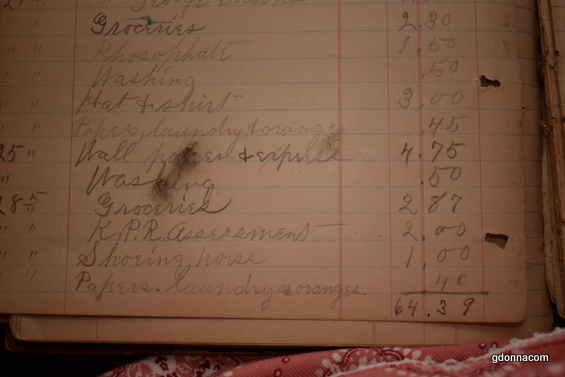 Groceries 2.30
" " Phosophate 1.50
" " Washing .50
" " Hat & shirt 3.00
" " Papers, laundry & oranges .45
25 " Wall paper & express 4.75
" Washing .50
285 Groceries 2.87
" " K.P.R. Assessment 2.00
" " Shoeing horse 1.00
" " Papers. laundry & oranges .40
64.39
gdonnacom